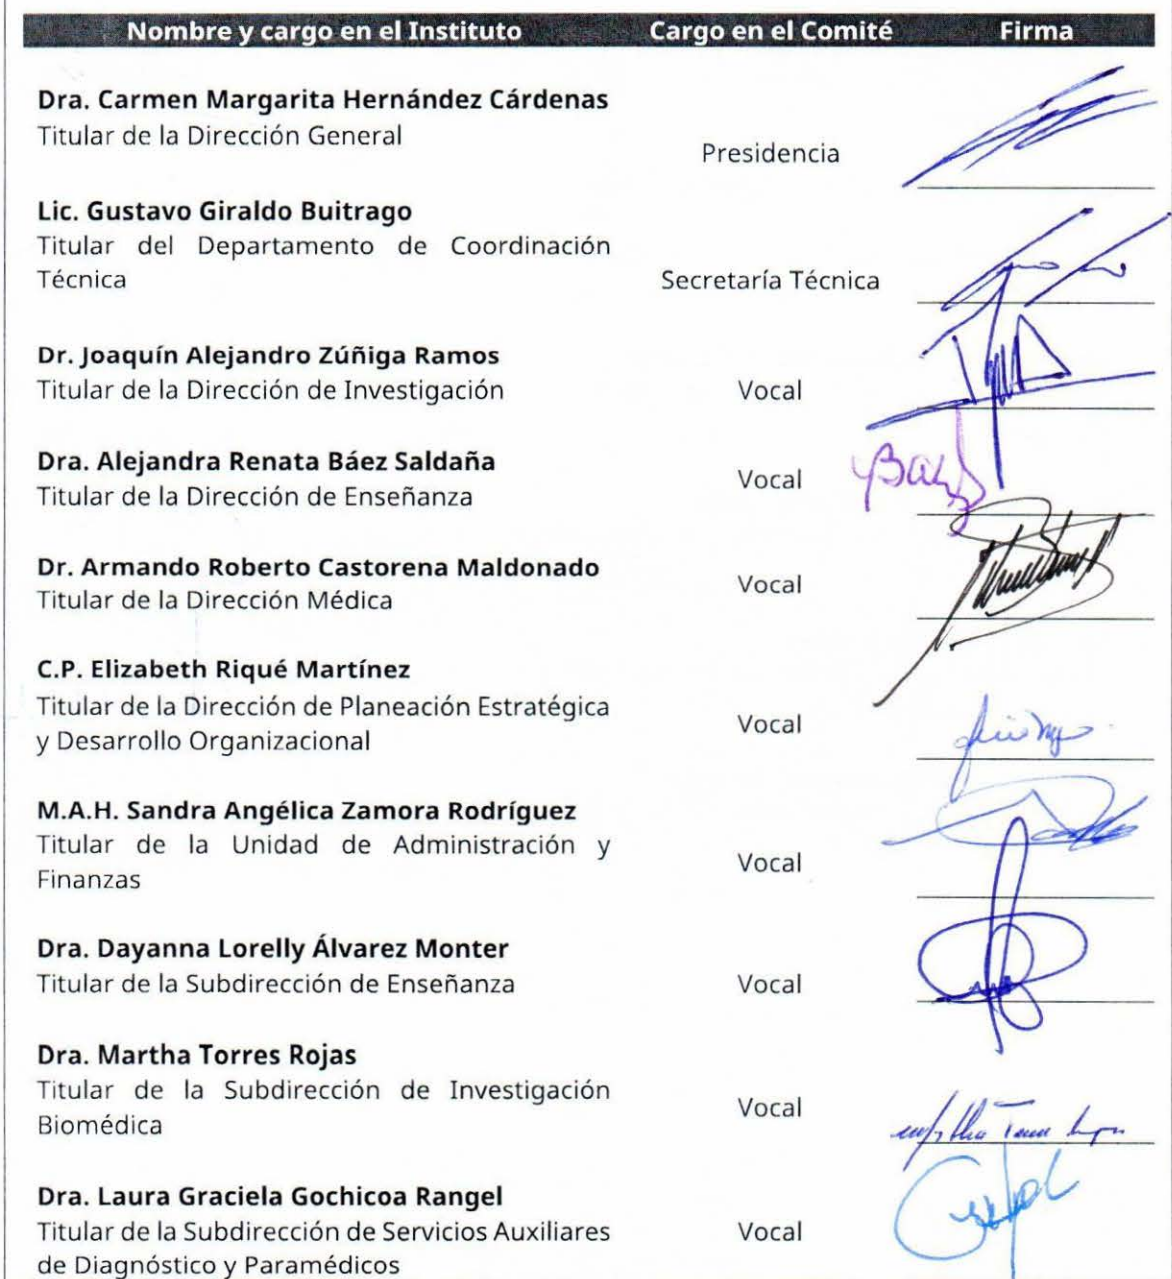 Nombre y cargo en el Instituto Cargo en el Comité Firma
Dra. Carmen Margarita Hernández Cárdenas
Titular de la Dirección General
Presidencia
Lic. Gustavo Giraldo Buitrago
Titular del Departamento de Coordinación
Técnica
Secretaría Técnica
Dr. Joaquín Alejandro Zúñiga Ramos
Titular de la Dirección de Investigación
Vocal
Dra. Alejandra Renata Báez Saldaña
Titular de la Dirección de Enseñanza
Vocal
Dr. Armando Roberto Castorena Maldonado
Titular de la Dirección Médica
Vocal
C.P. Elizabeth Riqué Martínez
Titular de la Dirección de Planeación Estratégica
y Desarrollo Organizacional
Vocal
M.A.H. Sandra Angélica Zamora Rodríguez
Titular de la Unidad de Administración y
Finanzas
Vocal
Dra. Dayanna Lorelly Álvarez Monter
Titular de la Subdirección de Enseñanza
Vocal
Dra. Martha Torres Rojas
Titular de la Subdirección de Investigación
Biomédica
Vocal
Dra. Laura Graciela Gochicoa Rangel
Titular de la Subdirección de Servicios Auxiliares
de Diagnóstico y Paramédicos
Vocal